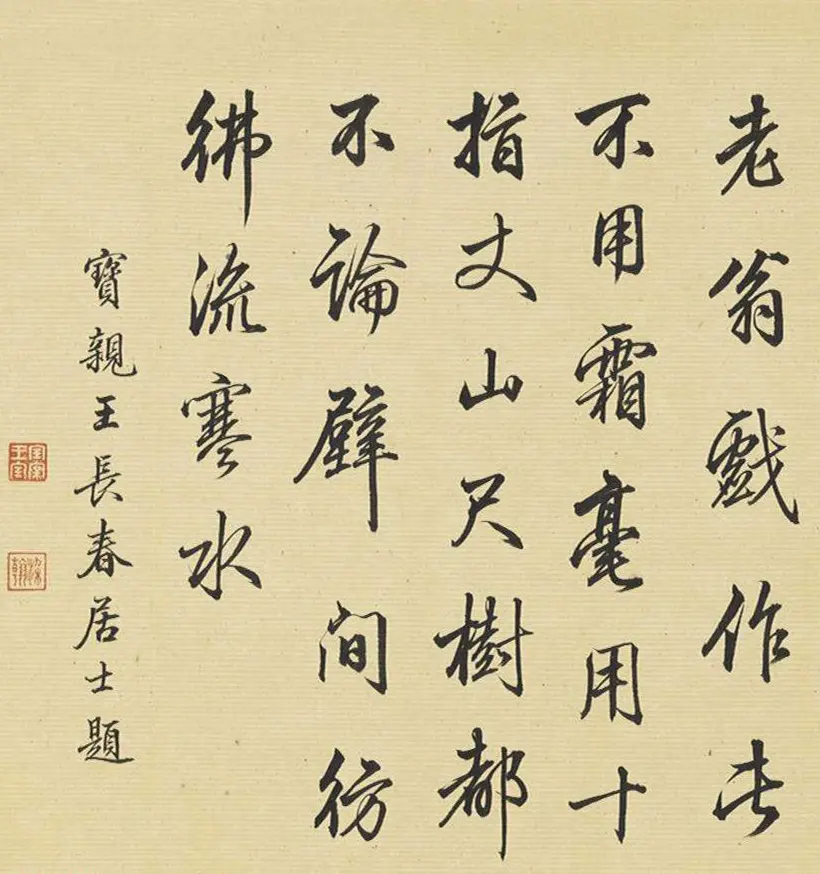 老翁戲作此
不用霜毫用十
指丈山尺樹都
不論壁間彷
彿流寒水
寶親王長春居士題